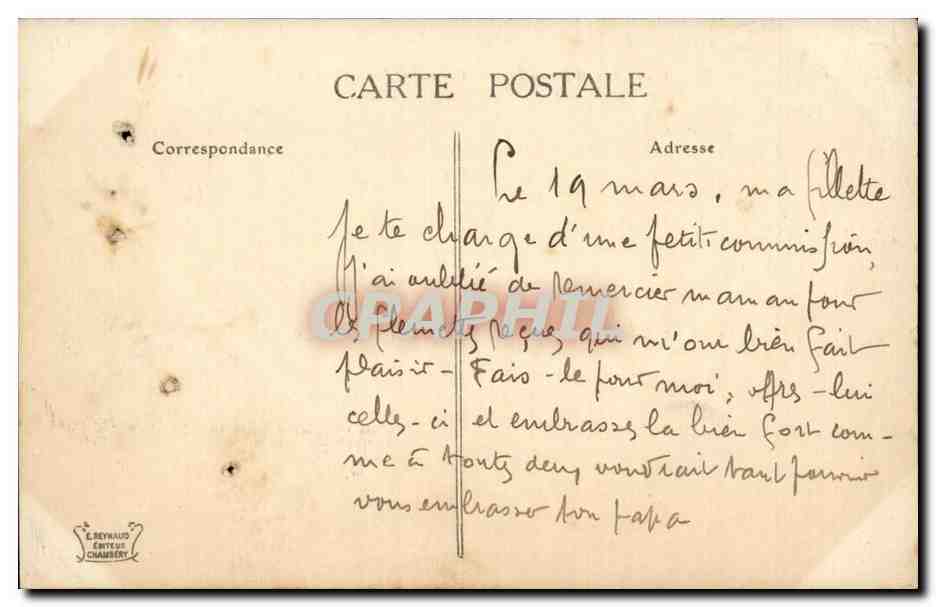 CARTE POSTALE
Correspondance
Adresse
Le 19 mars, ma fillette
Je te charge d'une petite commission,
J'ai oublié de remercier maman pour
les fleurettes reçues qui m'ont bien fait
plaisir - Fais-le pour moi, offres-lui
celles-ci et embrasses la bien fort com-
me à toutes deux voudrait tant pouvoir
vous embrasser ton papa
CRAPHIL
E. REYNAUD
ÉDITEUR
CHAMBÉRY